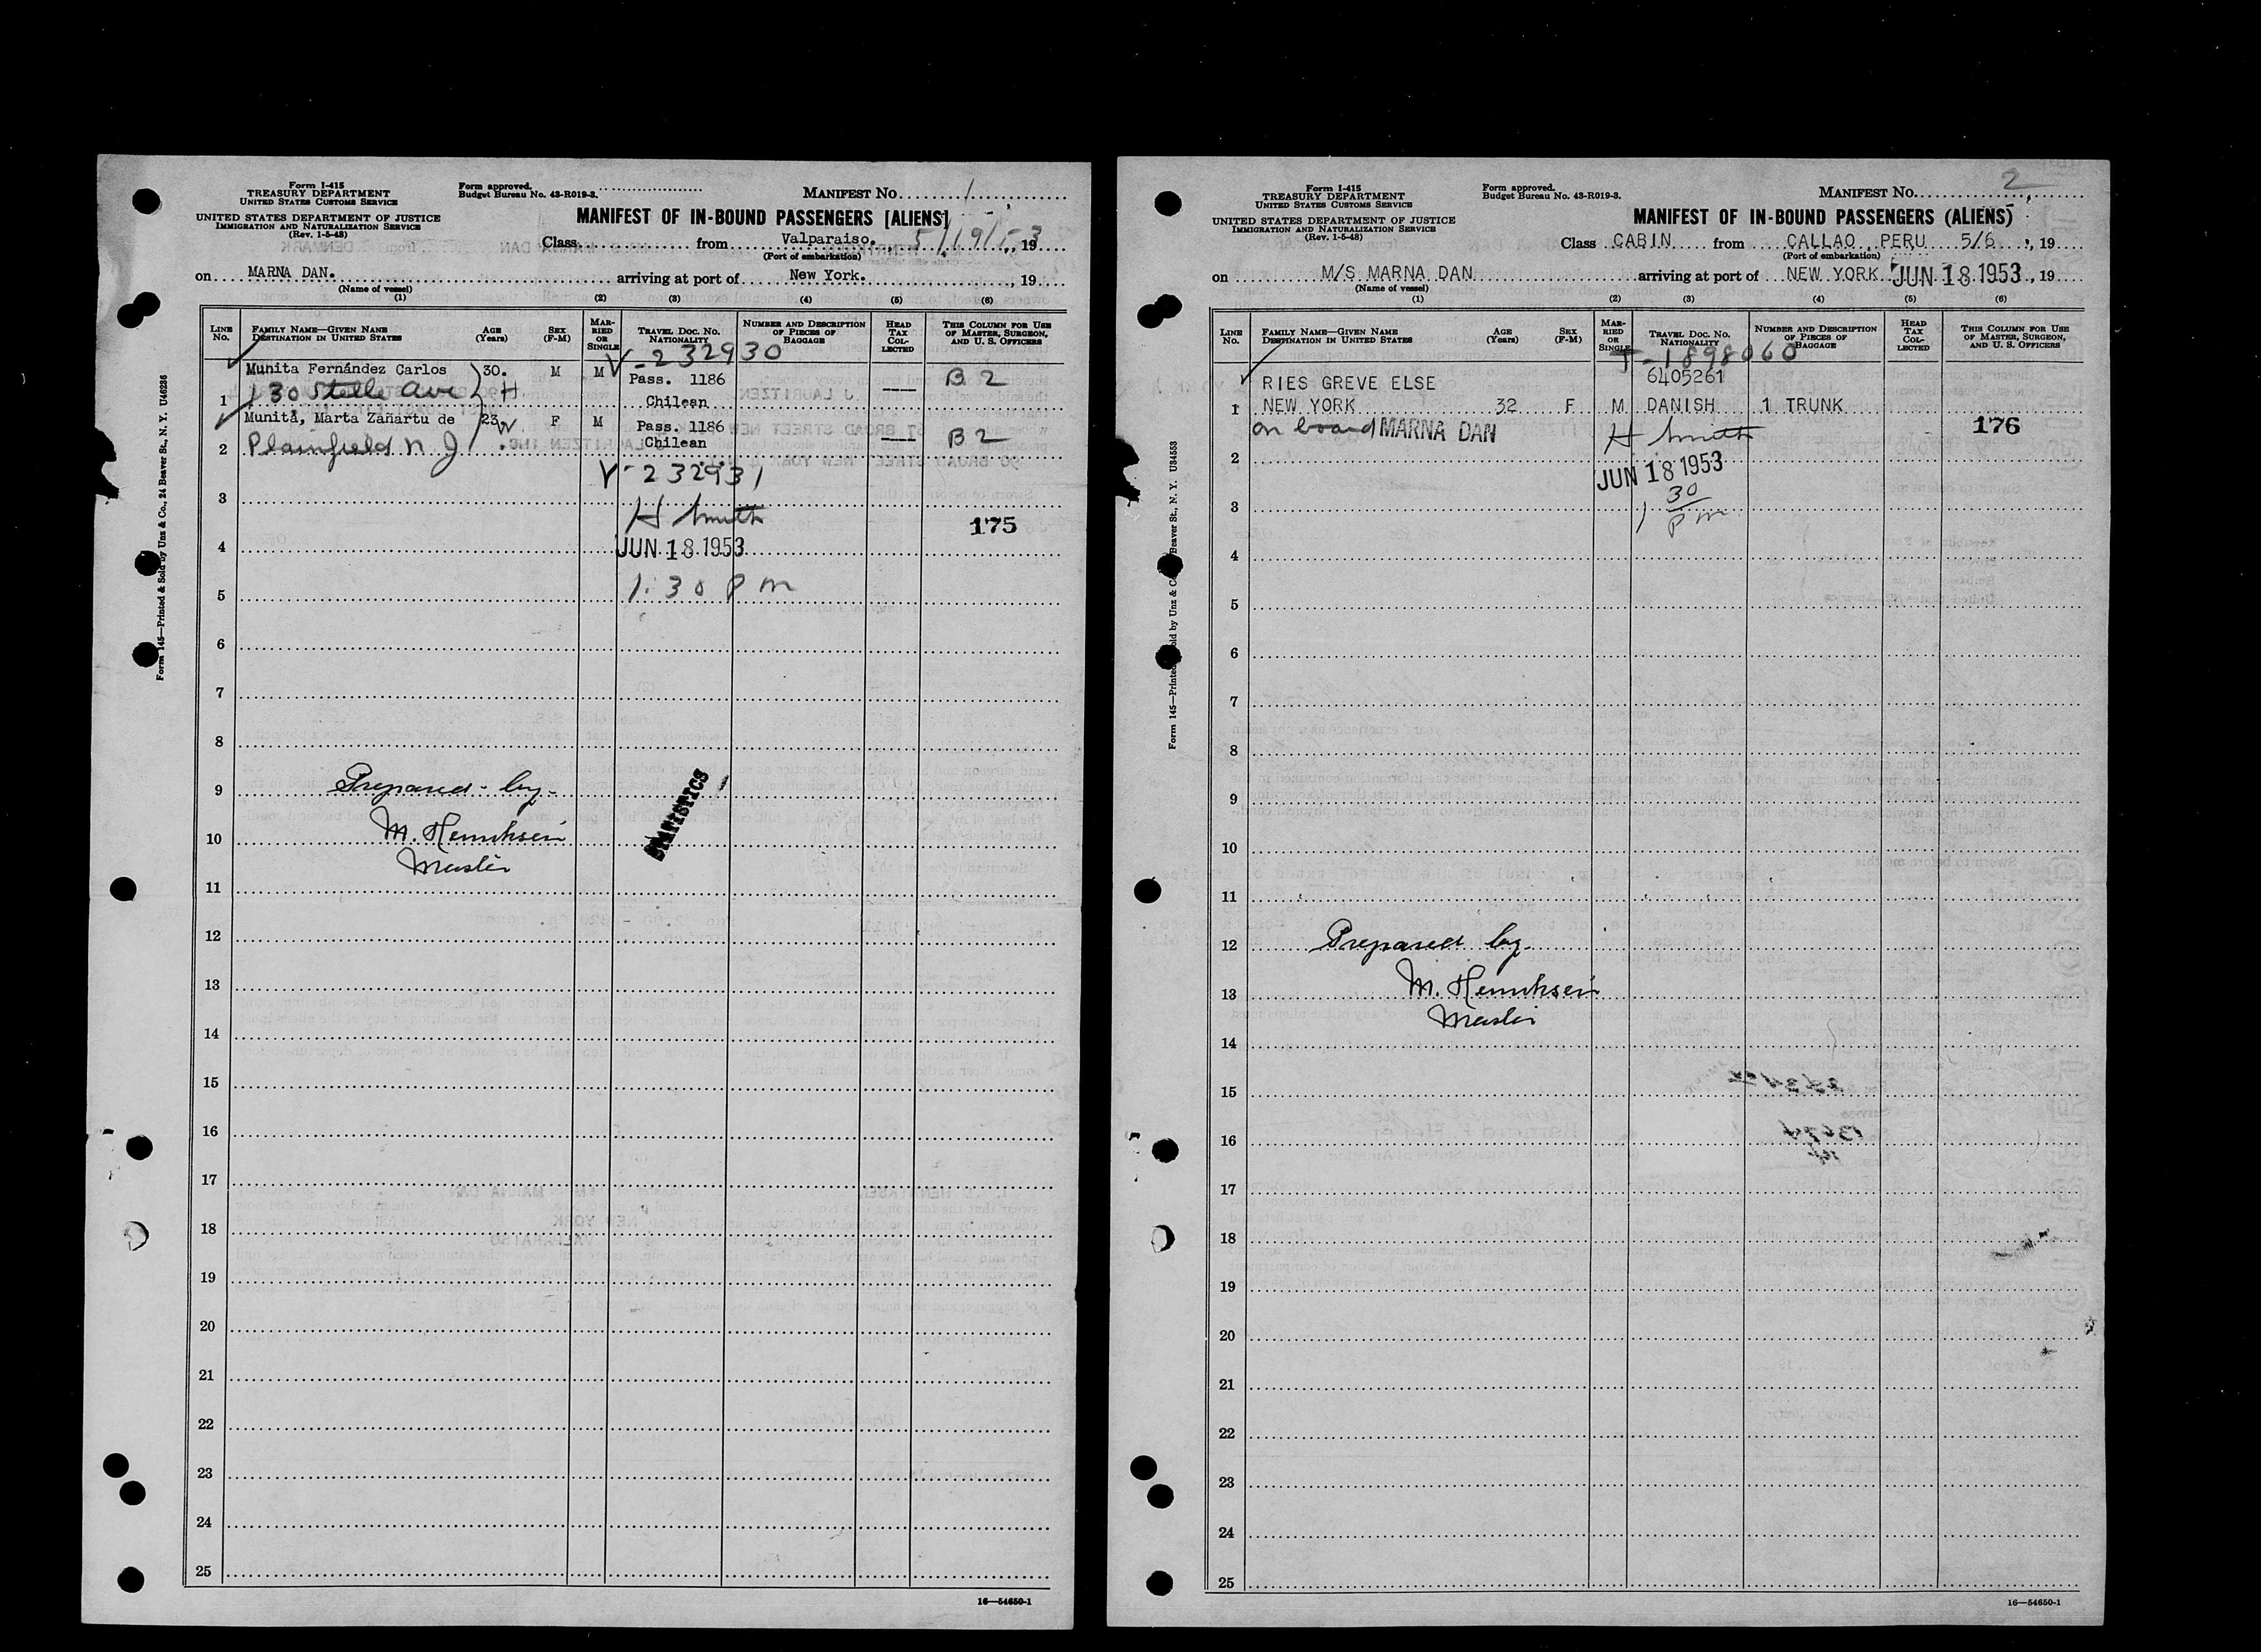 Form I-415
TREASURY DEPARTMENT
UNITED STATES CUSTOMS SERVICE
UNITED STATES DEPARTMENT OF JUSTICE
IMMIGRATION AND NATURALIZATION SERVICE
(Rev. 1-5-48)
Form approved.
Budget Bureau No. 43-R019-3.
MANIFEST No. 1
MANIFEST OF IN-BOUND PASSENGERS [ALIENS]
Class from Valparaiso. 5/19/53, 19
(Port of embarkation)
on MARNA DAN. arriving at port of New York. , 19
(Name of vessel)
(1) (2) (3) (4) (5) (6)
LINE No. FAMILY NAME—GIVEN NAME DESTINATION IN UNITED STATES AGE (Years) SEX (F-M) MARRIED OR SINGLE TRAVEL DOC. No. NATIONALITY NUMBER AND DESCRIPTION OF PIECES OF BAGGAGE HEAD TAX COLLECTED THIS COLUMN FOR USE OF MASTER, SURGEON, AND U. S. OFFICERS
V-232930
Munita Fernández Carlos 30. M M Pass. 1186 B2
1 130 Stelle Ave H Chilean
Munita, Marta Zañartu de 23. W F M Pass. 1186 B2
2 Plainfield N J Chilean
V-232931
3
H Smith 175
4 JUN 18 1953
5 1:30 P m
6
7
8
9 Prepared by
STATISTICS
10 M. Henriksen
Master
11
12
13
14
15
16
17
18
19
20
21
22
23
24
25
16—54650-1
Form 145—Printed & Sold by Unz & Co., 24 Beaver St., N. Y. U46236
Form I-415
TREASURY DEPARTMENT
UNITED STATES CUSTOMS SERVICE
UNITED STATES DEPARTMENT OF JUSTICE
IMMIGRATION AND NATURALIZATION SERVICE
(Rev. 1-5-48)
Form approved.
Budget Bureau No. 43-R019-3.
MANIFEST No. 2
MANIFEST OF IN-BOUND PASSENGERS (ALIENS)
Class CABIN from CALLAO, PERU 5/6, 19
(Port of embarkation)
on M/S MARNA DAN arriving at port of NEW YORK JUN 18 1953, 19
(Name of vessel)
(1) (2) (3) (4) (5) (6)
LINE No. FAMILY NAME—GIVEN NAME DESTINATION IN UNITED STATES AGE (Years) SEX (F-M) MARRIED OR SINGLE TRAVEL DOC. No. NATIONALITY NUMBER AND DESCRIPTION OF PIECES OF BAGGAGE HEAD TAX COLLECTED THIS COLUMN FOR USE OF MASTER, SURGEON, AND U. S. OFFICERS
T-1898060
RIES GREVE ELSE 6405261
1 NEW YORK 32 F M DANISH 1 TRUNK
on board MARNA DAN H Smith 176
2
JUN 18 1953
3 1 30 P m
4
5
6
7
8
9
10
11
12 Prepared by
13 M. Henriksen
Master
14
15
16
17
18
19
20
21
22
23
24
25
16—54650-1
Form 145—Printed & Sold by Unz & Co., Beaver St., N. Y. U34553